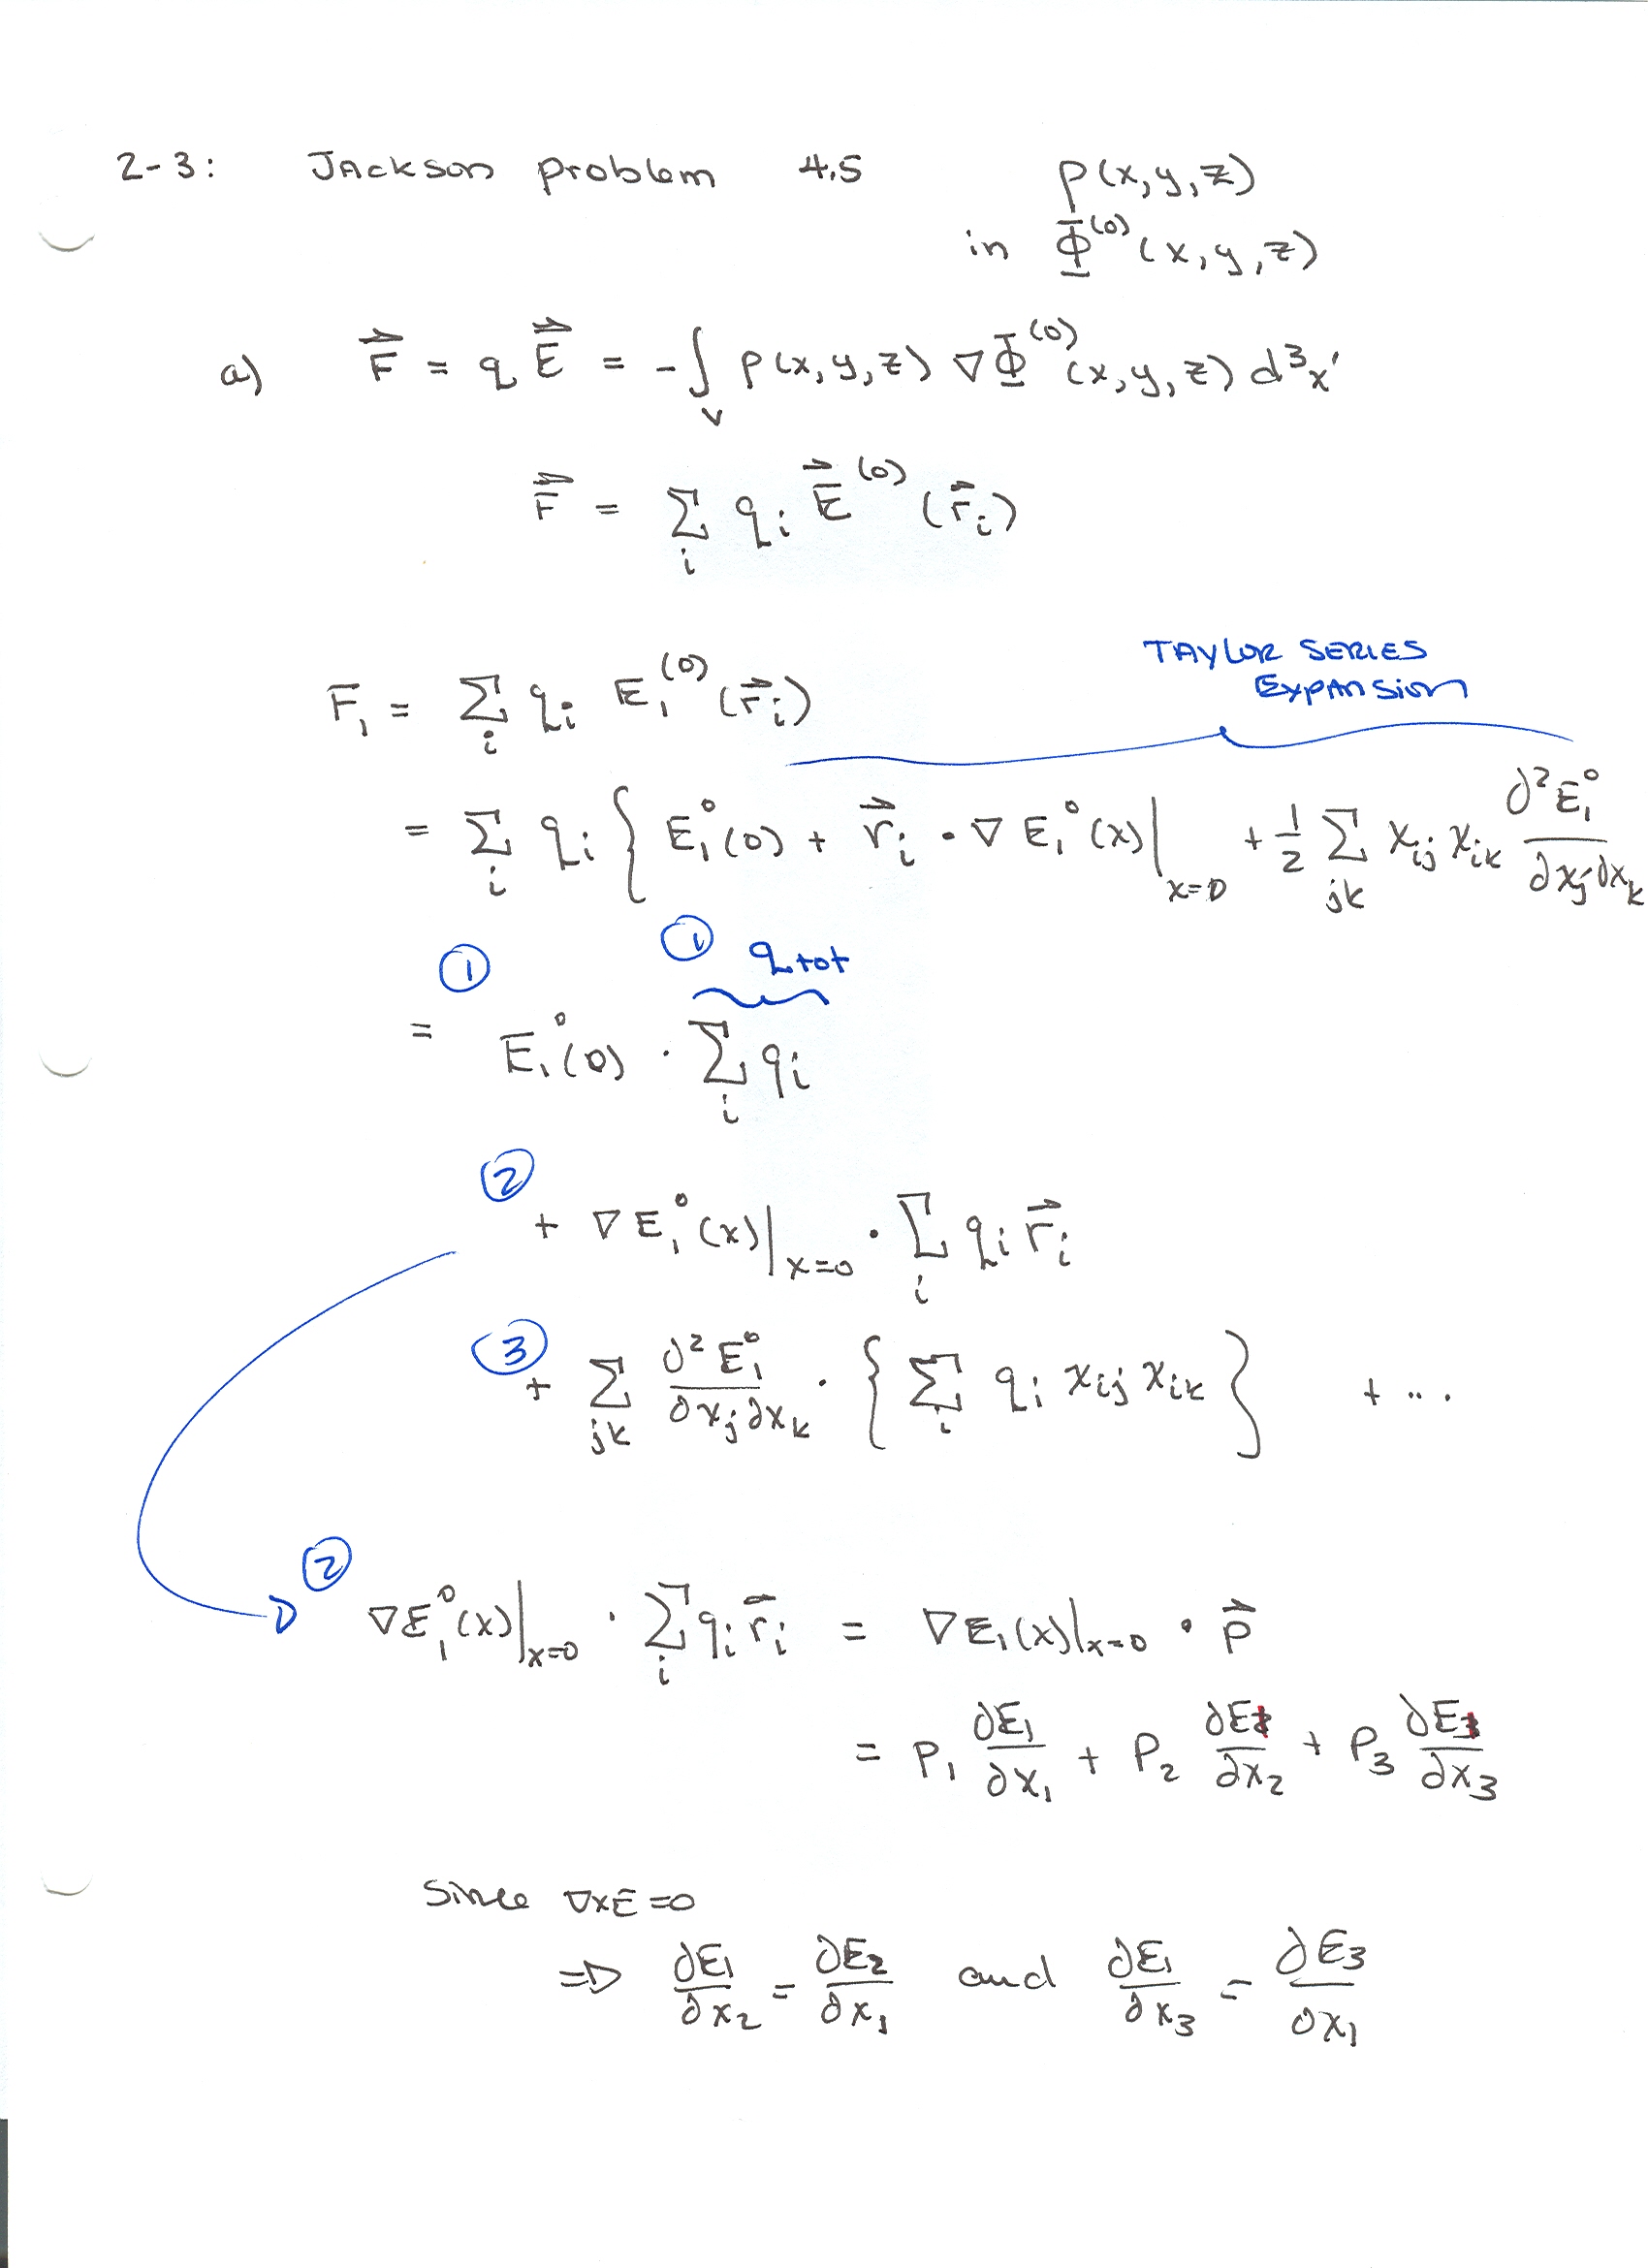 2-3: Jackson problem 4.5 ρ(x,y,z)
in Φ^(0)(x,y,z)
a) F⃗ = q E⃗ = -∫_V ρ(x,y,z) ∇Φ^(0)(x,y,z) d³x'
F⃗ = Σ_i q_i E⃗^(0)(r⃗_i)
TAYLOR SERIES
EXPANSION
F₁ = Σ_i q_i E₁^(0)(r⃗_i)
= Σ_i q_i { E₁°(0) + r⃗_i · ∇E₁°(x)|_x=0 + 1/2 Σ_jk x_ij x_ik ∂²E₁°/∂x_j∂x_k
① ① q_tot
= E₁°(0) · Σ_i q_i
② + ∇E₁°(x)|_x=0 · Σ_i q_i r⃗_i
③ + Σ_jk ∂²E₁°/∂x_j∂x_k · { Σ_i q_i x_ij x_ik } + ...
② ∇E₁°(x)|_x=0 · Σ_i q_i r⃗_i = ∇E₁(x)|_x=0 · p⃗
= P₁ ∂E₁/∂x₁ + P₂ ∂E₁/∂x₂ + P₃ ∂E₁/∂x₃
Since ∇×E=0
⇒ ∂E₁/∂x₂ = ∂E₂/∂x₁ and ∂E₁/∂x₃ = ∂E₃/∂x₁